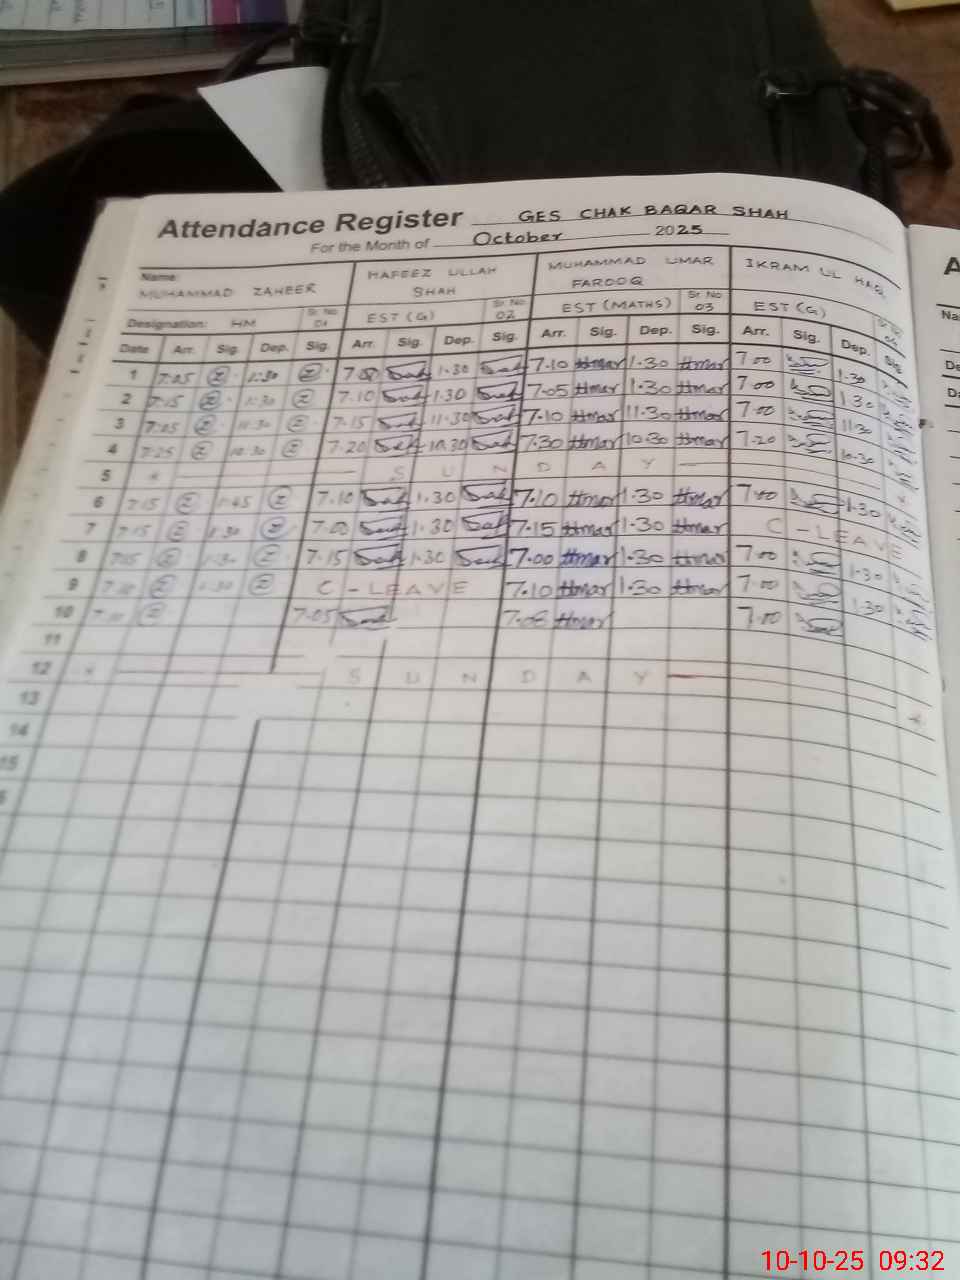 Attendance Register GES CHAK BAQAR SHAH
For the Month of October 2025
Name: MUHAMMAD ZAHEER HAFEEZ ULLAH SHAH MUHAMMAD UMAR FAROOQ IKRAM UL HAQ
Designation: HM Sr. No 01 EST (G) Sr. No 02 EST (MATHS) Sr. No 03 EST (G) Sr. No 04
Date Arr. Sig. Dep. Sig. Arr. Sig. Dep. Sig. Arr. Sig. Dep. Sig. Arr. Sig. Dep. Sig.
1 7:05 1:30 7.00 1.30 7.10 Umar 1.30 Umar 7.00 1.30
2 7:15 1:30 7.10 1.30 7.05 Umar 1.30 Umar 7.00 1.30
3 7:05 11:30 7.15 11.30 7.10 Umar 11.30 Umar 7.00 11.30
4 7:25 10:30 7.20 10.30 7.30 Umar 10.30 Umar 7.20 10.30
5 S U N D A Y
6 7:15 1:45 7.10 1.30 7.10 Umar 1.30 Umar 7.00 1.30
7 7:15 1:30 7.00 1.30 7.15 Umar 1.30 Umar C - LEAVE
8 7:05 1:30 7.15 1.30 7.00 Umar 1.30 Umar 7.00 1.30
9 1:30 C - LEAVE 7.10 Umar 1.30 Umar 7.00 1.30
10 7.05 Umar 7.00
11
12 S U N D A Y
13
14
15
10-10-25 09:32